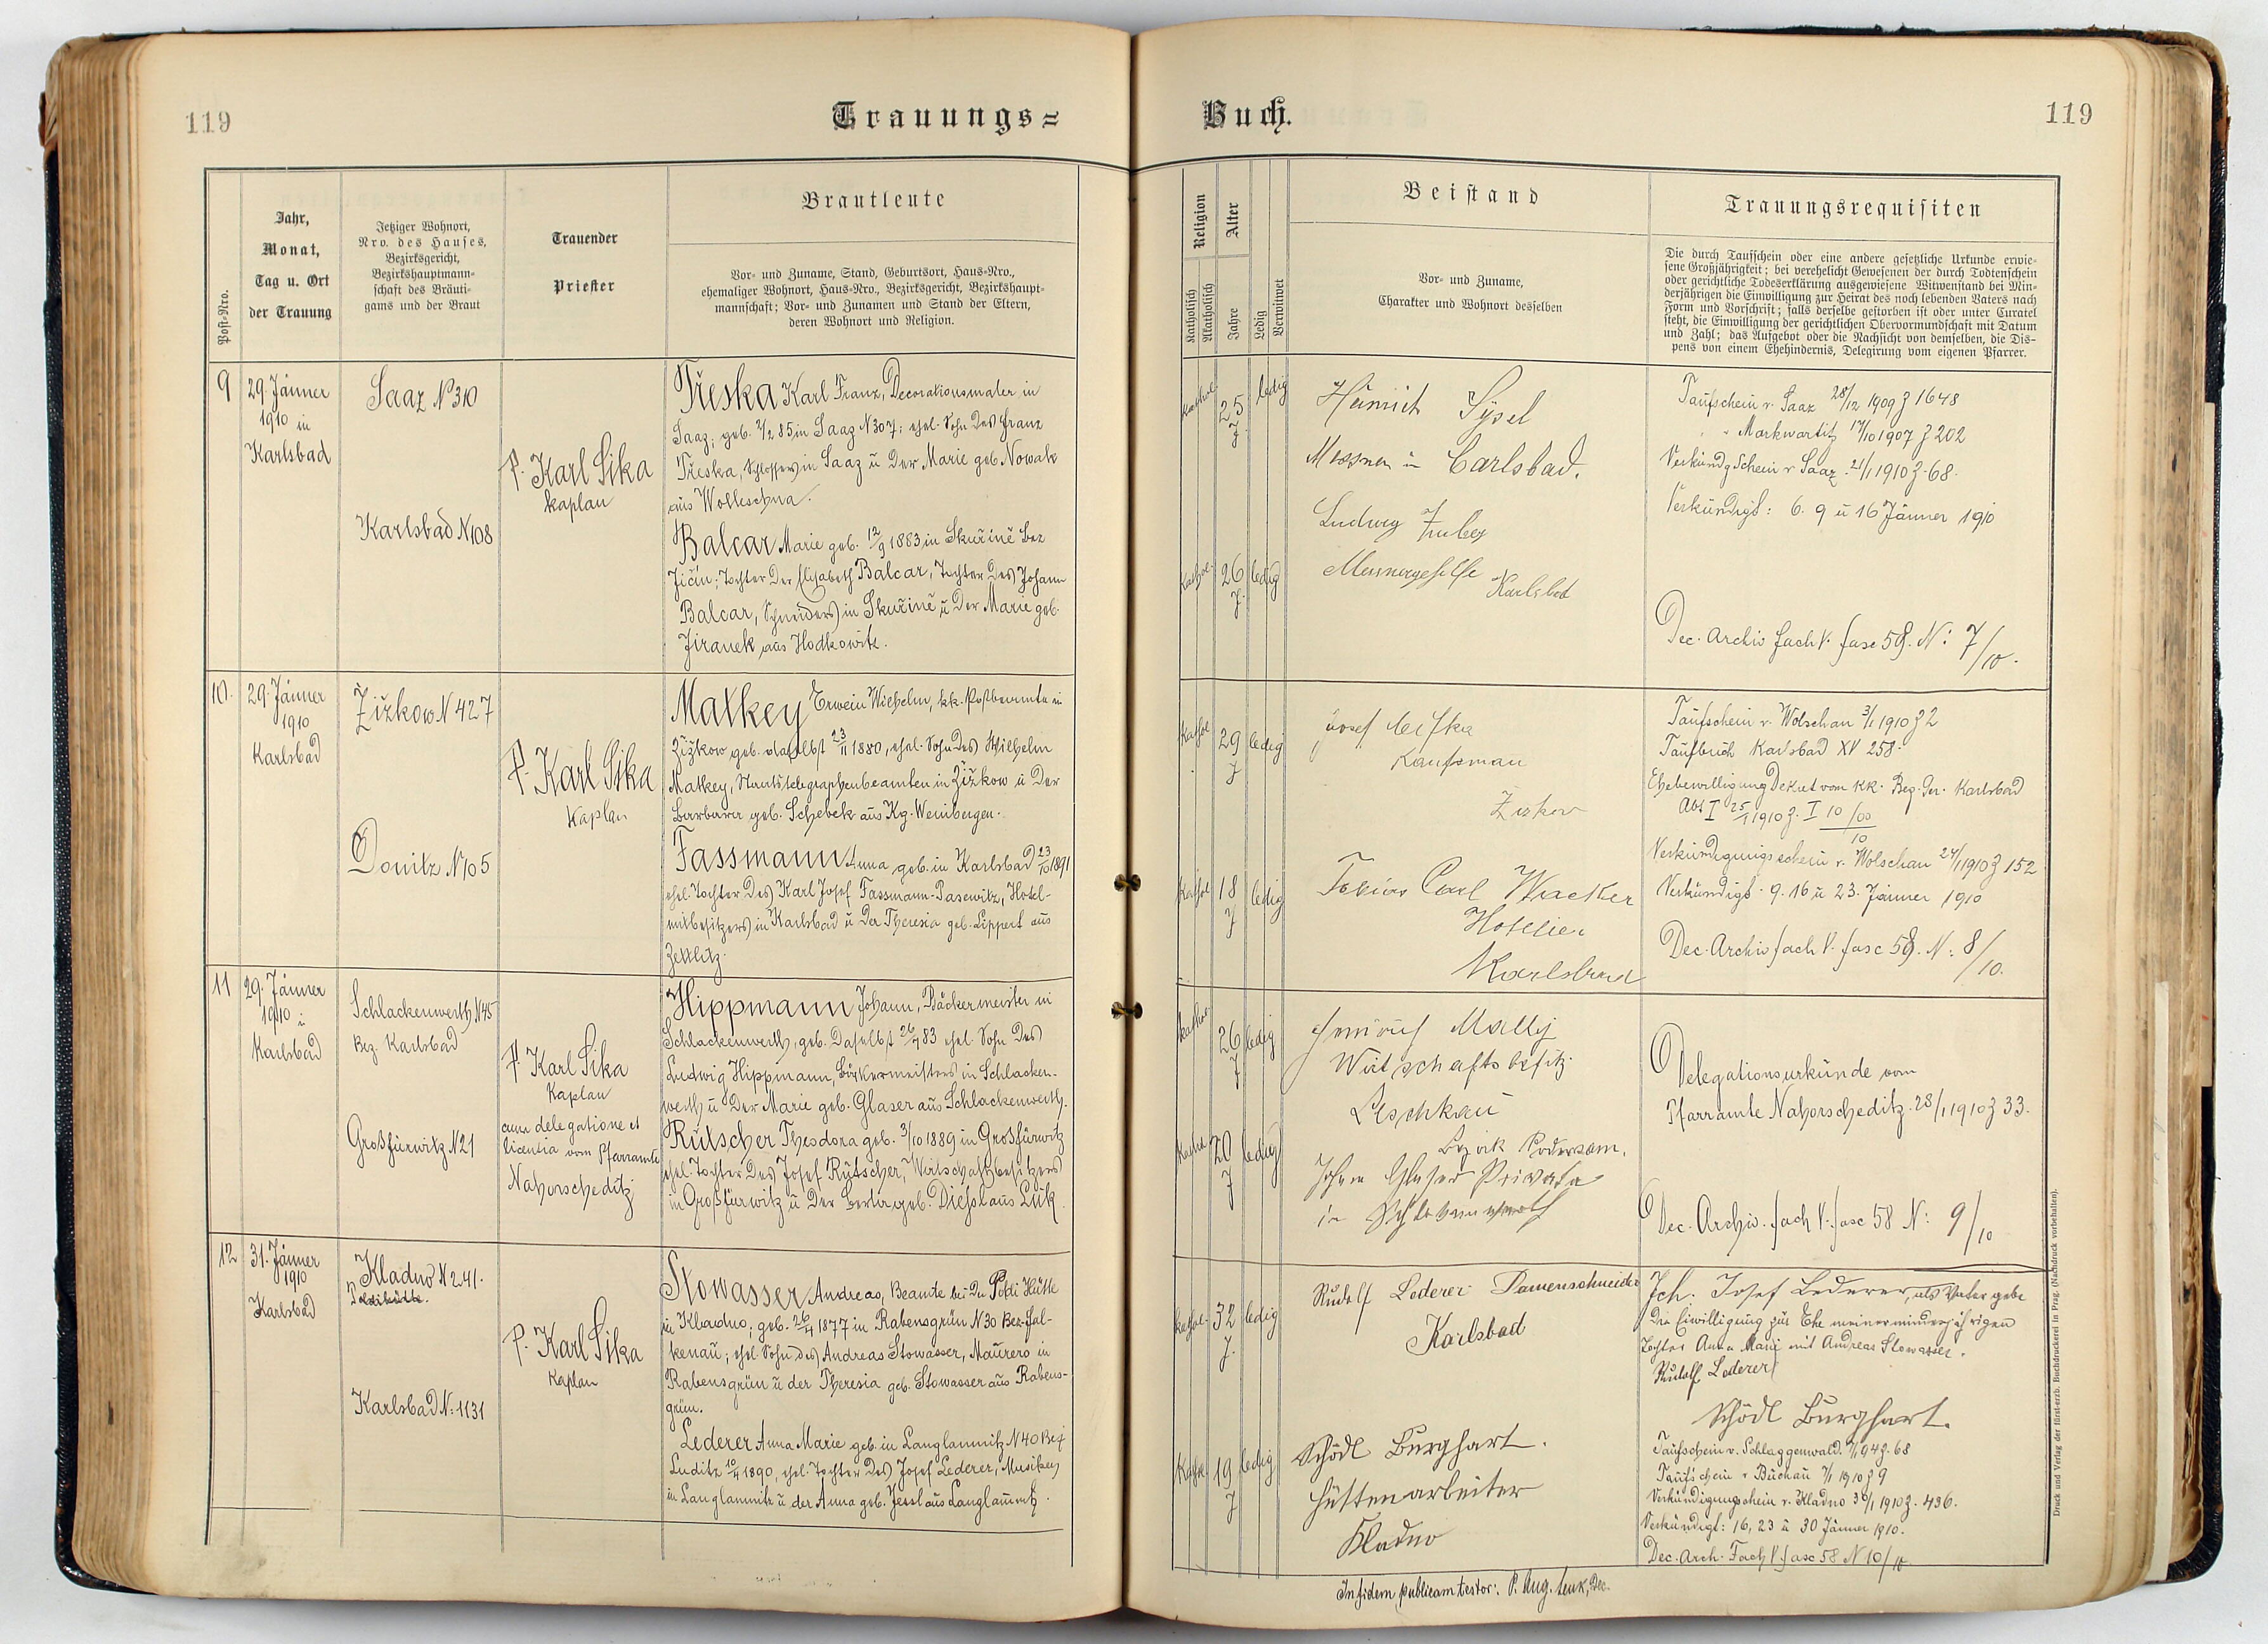 119
Trauungs=
Buch.
119
Post=Nro.
Jahr,
Monat,
Tag u. Ort
der Trauung
Jetziger Wohnort,
Nro. des Hauses,
Bezirksgericht,
Bezirkshauptmann=
schaft des Bräuti=
gams und der Braut
Trauender
Priester
Brautleute
Vor= und Zuname, Stand, Geburtsort, Haus=Nro.,
ehemaliger Wohnort, Haus=Nro., Bezirksgericht, Bezirkshaupt=
mannschaft; Vor= und Zunamen und Stand der Eltern,
deren Wohnort und Religion.
Religion
Katholisch
Akatholisch
Alter
Jahre
Ledig
Verwitwet
Beistand
Vor= und Zuname,
Charakter und Wohnort desselben
Trauungsrequisiten
Die durch Taufschein oder eine andere gesetzliche Urkunde erwie=
sene Großjährigkeit; bei verehelicht Gewesenen der durch Todtenschein
oder gerichtliche Todeserklärung ausgewiesene Witwenstand bei Min=
derjährigen die Einwilligung zur Heirat des noch lebenden Vaters nach
Form und Vorschrift; falls derselbe gestorben ist oder unter Curatel
steht, die Einwilligung der gerichtlichen Obervormundschaft mit Datum
und Zahl; das Aufgebot oder die Nachsicht von demselben, die Dis=
pens von einem Ehehindernis, Delegirung vom eigenen Pfarrer.
9
29. Jänner
1910 in
Karlsbad
Saaz N 310
Karlsbad N 108
P. Karl Sika
Kaplan
Třeska Karl Franz, Decorationsmaler in
Saaz; geb. 2/2 85 in Saaz N 307; ehel. Sohn des Franz
Třeska, Schlossers in Saaz u der Marie geb. Nowak
aus Wolleschna.
Balcar Marie geb. 12/9 1883 in Skuřině Bez
Jičin; Tochter der Elisabeth Balcar, Tochter des Johann
Balcar, Schneiders in Skuřině u der Marie geb.
Jiranek aus Hodkowitz.
kathol.
25
J.
ledig
kathol.
26
J.
ledig
Heinrich Sysel
Messner in Carlsbad.
Ludwig
Messnergehilfe
Karlsbad
Taufschein v. Saaz 28/12 1909 Z 1648
" " Markwartitz 17/10 1907 Z 202
Verkündgschein v Saaz 21/1 1910 Z. 68.
Verkündigt: 6. 9 u 16 Jänner 1910
Dec. Archiv fach V. fasc 58. N: 7/10.
10.
29. Jänner
1910
Karlsbad
Žižkow N 427
Donitz N 105
P. Karl Sika
Kaplan
Matkey Erwein Wilhelm, kk. Postbeamte in
Žižkow geb. daselbst 23/11 1880, ehel. Sohn des Wilhelm
Matkey, Staatstelegraphenbeamten in Žižkow u der
Barbara geb. Schebek aus Kg. Weinbergen.
Fassmann Anna, geb. in Karlsbad 23/10 1891
ehel. Tochter des Karl Josef Fassmann-Pasewitz, Hotel-
mitbesitzers in Karlsbad u der Theresia geb. Lippert aus
Zettlitz.
kathol
29
J
ledig
kathol
18
J
ledig
Josef
Kaufman
Zizkov
Tobias Carl Wracker
Hotelier
Karlsbad
Taufschein v. Wolschan 3/1 1910 Z 2
Taufbuch Karlsbad XV 258.
Ehebewilligung Dekret vom kk. Bez. Ger. Karlsbad
Abt I 25/1 1910 Z. I 10/00
10
Verkündigungsschein v. Wolschan 24/1 1910 Z 152
Verkündigt. 9. 16 u 23. Jänner 1910
Dec. Archiv fach V. fasc 58. N: 8/10.
11
29. Jänner
1910 in
Karlsbad
Schlackenwerth N 45
Bez. Karlsbad
Großfürwitz N 21
P. Karl Sika
Kaplan
cum delegatione et
licentia vom Pfarramte
Nahorscheditz
Hippmann Johann, Bäckermeister in
Schlackenwerth, geb. daselbst 26/4 83 ehel. Sohn des
Ludwig Hippmann, Bäckermeisters in Schlacken-
werth u der Marie geb. Glaser aus Schlackenwerth.
Rutscher Theodora geb. 3/10 1889 in Großfürwitz
ehel. Tochter des Josef Rutscher, Wirtschaftsbesitzers
in Großfürwitz u der Berta geb. Diessl aus Luk.
kathol.
26
J
ledig
kathol
20
J
ledig
Heinrich Mally
Wirtschaftsbesitz.
Leschkau
Bezirk Podersam.
Johann Glaser Privatier
in Schlackenwerth
Delegationsurkunde vom
Pfarramte Nahorscheditz 28/1 1910 Z 33.
Dec. Archiv. fach V. fasc 58 N: 9/10
12
31. Jänner
1910
Karlsbad
Kladno N 241.
Poldihütte.
Karlsbad N: 1131
P. Karl Sika
Kaplan
Stowasser Andreas, Beamte bei der Poldi Hütte
in Kladno; geb. 26/4 1877 in Rabensgrün N 30 Bez. Fal-
kenau; ehel. Sohn des Andreas Stowasser, Maurers in
Rabensgrün u der Theresia geb. Stowasser aus Rabens-
grün.
Lederer Anna Marie geb. in Langlamnitz N 40 Bez
Luditz 10/4 1890, ehel. Tochter des Josef Lederer, Musikers
in Langlamnitz u der Anna geb. Jessl aus Langlamnitz.
kathol.
32
J.
ledig
Kathol.
19
J
ledig
Rudolf Lederer Damenschneider
Karlsbad
Schödl Burghart.
Hüttenarbeiter
Kladno
Ich. Josef Lederer, als Vater gebe
die Eiwilligung zur Ehe meiner minderjährigen
Tochter Anna Marie mit Andreas Stowasser.
Rudolf Lederer
Schödl Burghart.
Taufschein v. Schlaggenwald. 94 Z. 68
Taufschein v Buchau 7/1 1910 Z 9
Verkündigungschein v. Kladno 30/1 1910 Z. 436.
Verkündigt: 16, 23 u 30 Jänner 1910.
Dec. Arch. Fach V. fasc 58 N 10/10.
In fidem publicam testor: P. Aug. Dec.
Druck und Verlag der fürst-erzb. Buchdruckerei in Prag. (Nachdruck vorbehalten).